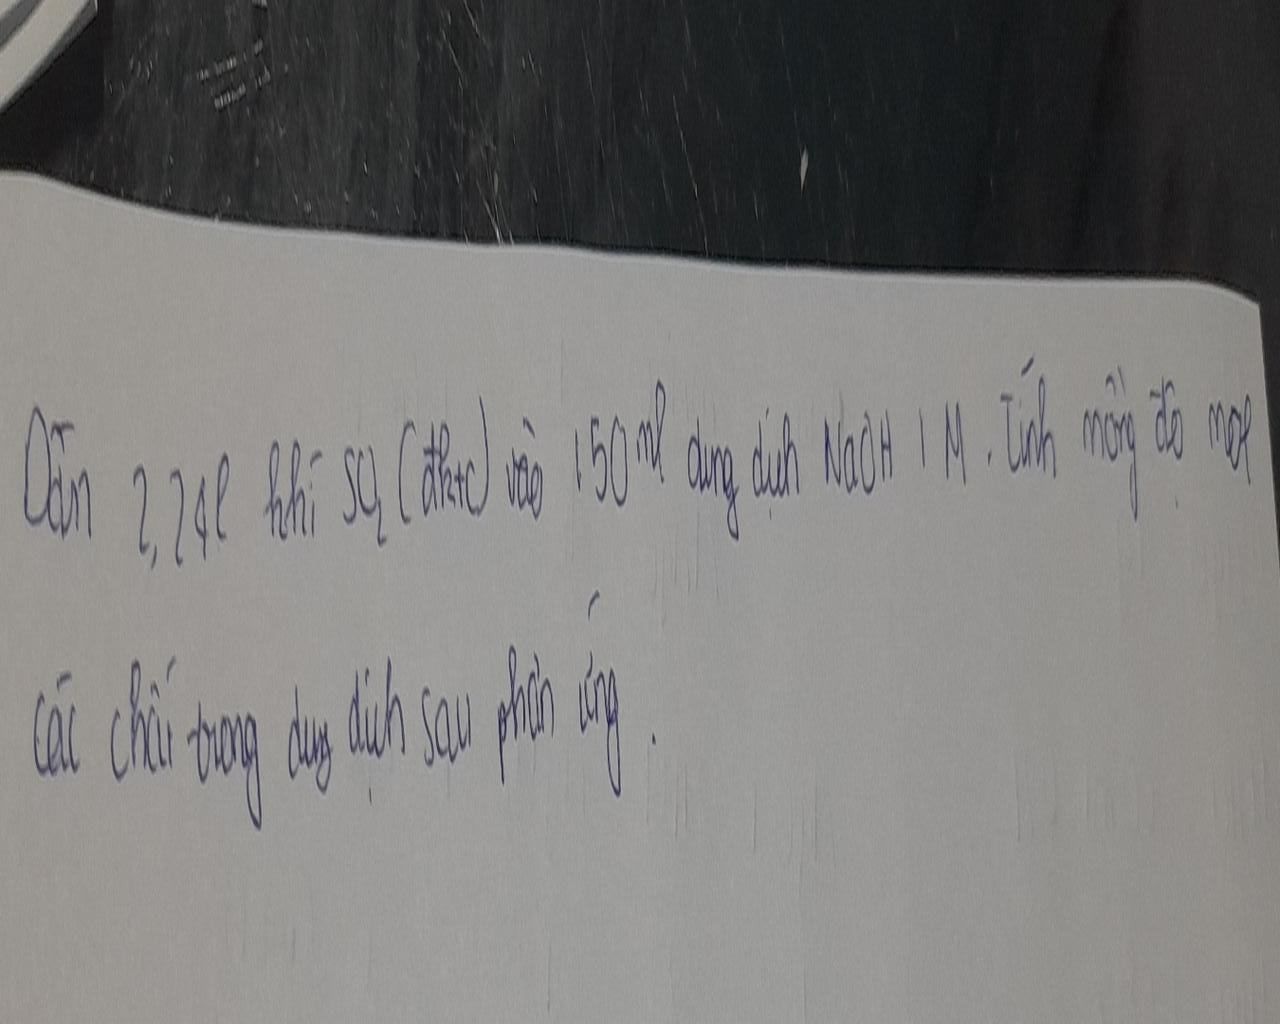 Dẫn 2,24l khí SO2 (đktc) vào 150 ml dung dịch NaOH 1 M. Tính nồng độ mol
các chất trong dung dịch sau phản ứng.